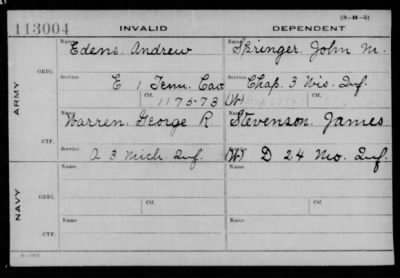 (3-M-3)
113004 INVALID DEPENDENT
Name Edens Andrew Name Springer John M.
ARMY
ORIG.
Service E 1 Tenn. Cav Service Chap. 3 Wis. Inf.
Ctf. 1175-73 (W) Ctf.
Name Warren George R. Name Stevenson James
CTF.
Service A 3 Mich Inf. Service (W) D 24 Mo. Inf.
NAVY
ORIG.
Name Name
Ctf. Ctf.
CTF.
Name Name